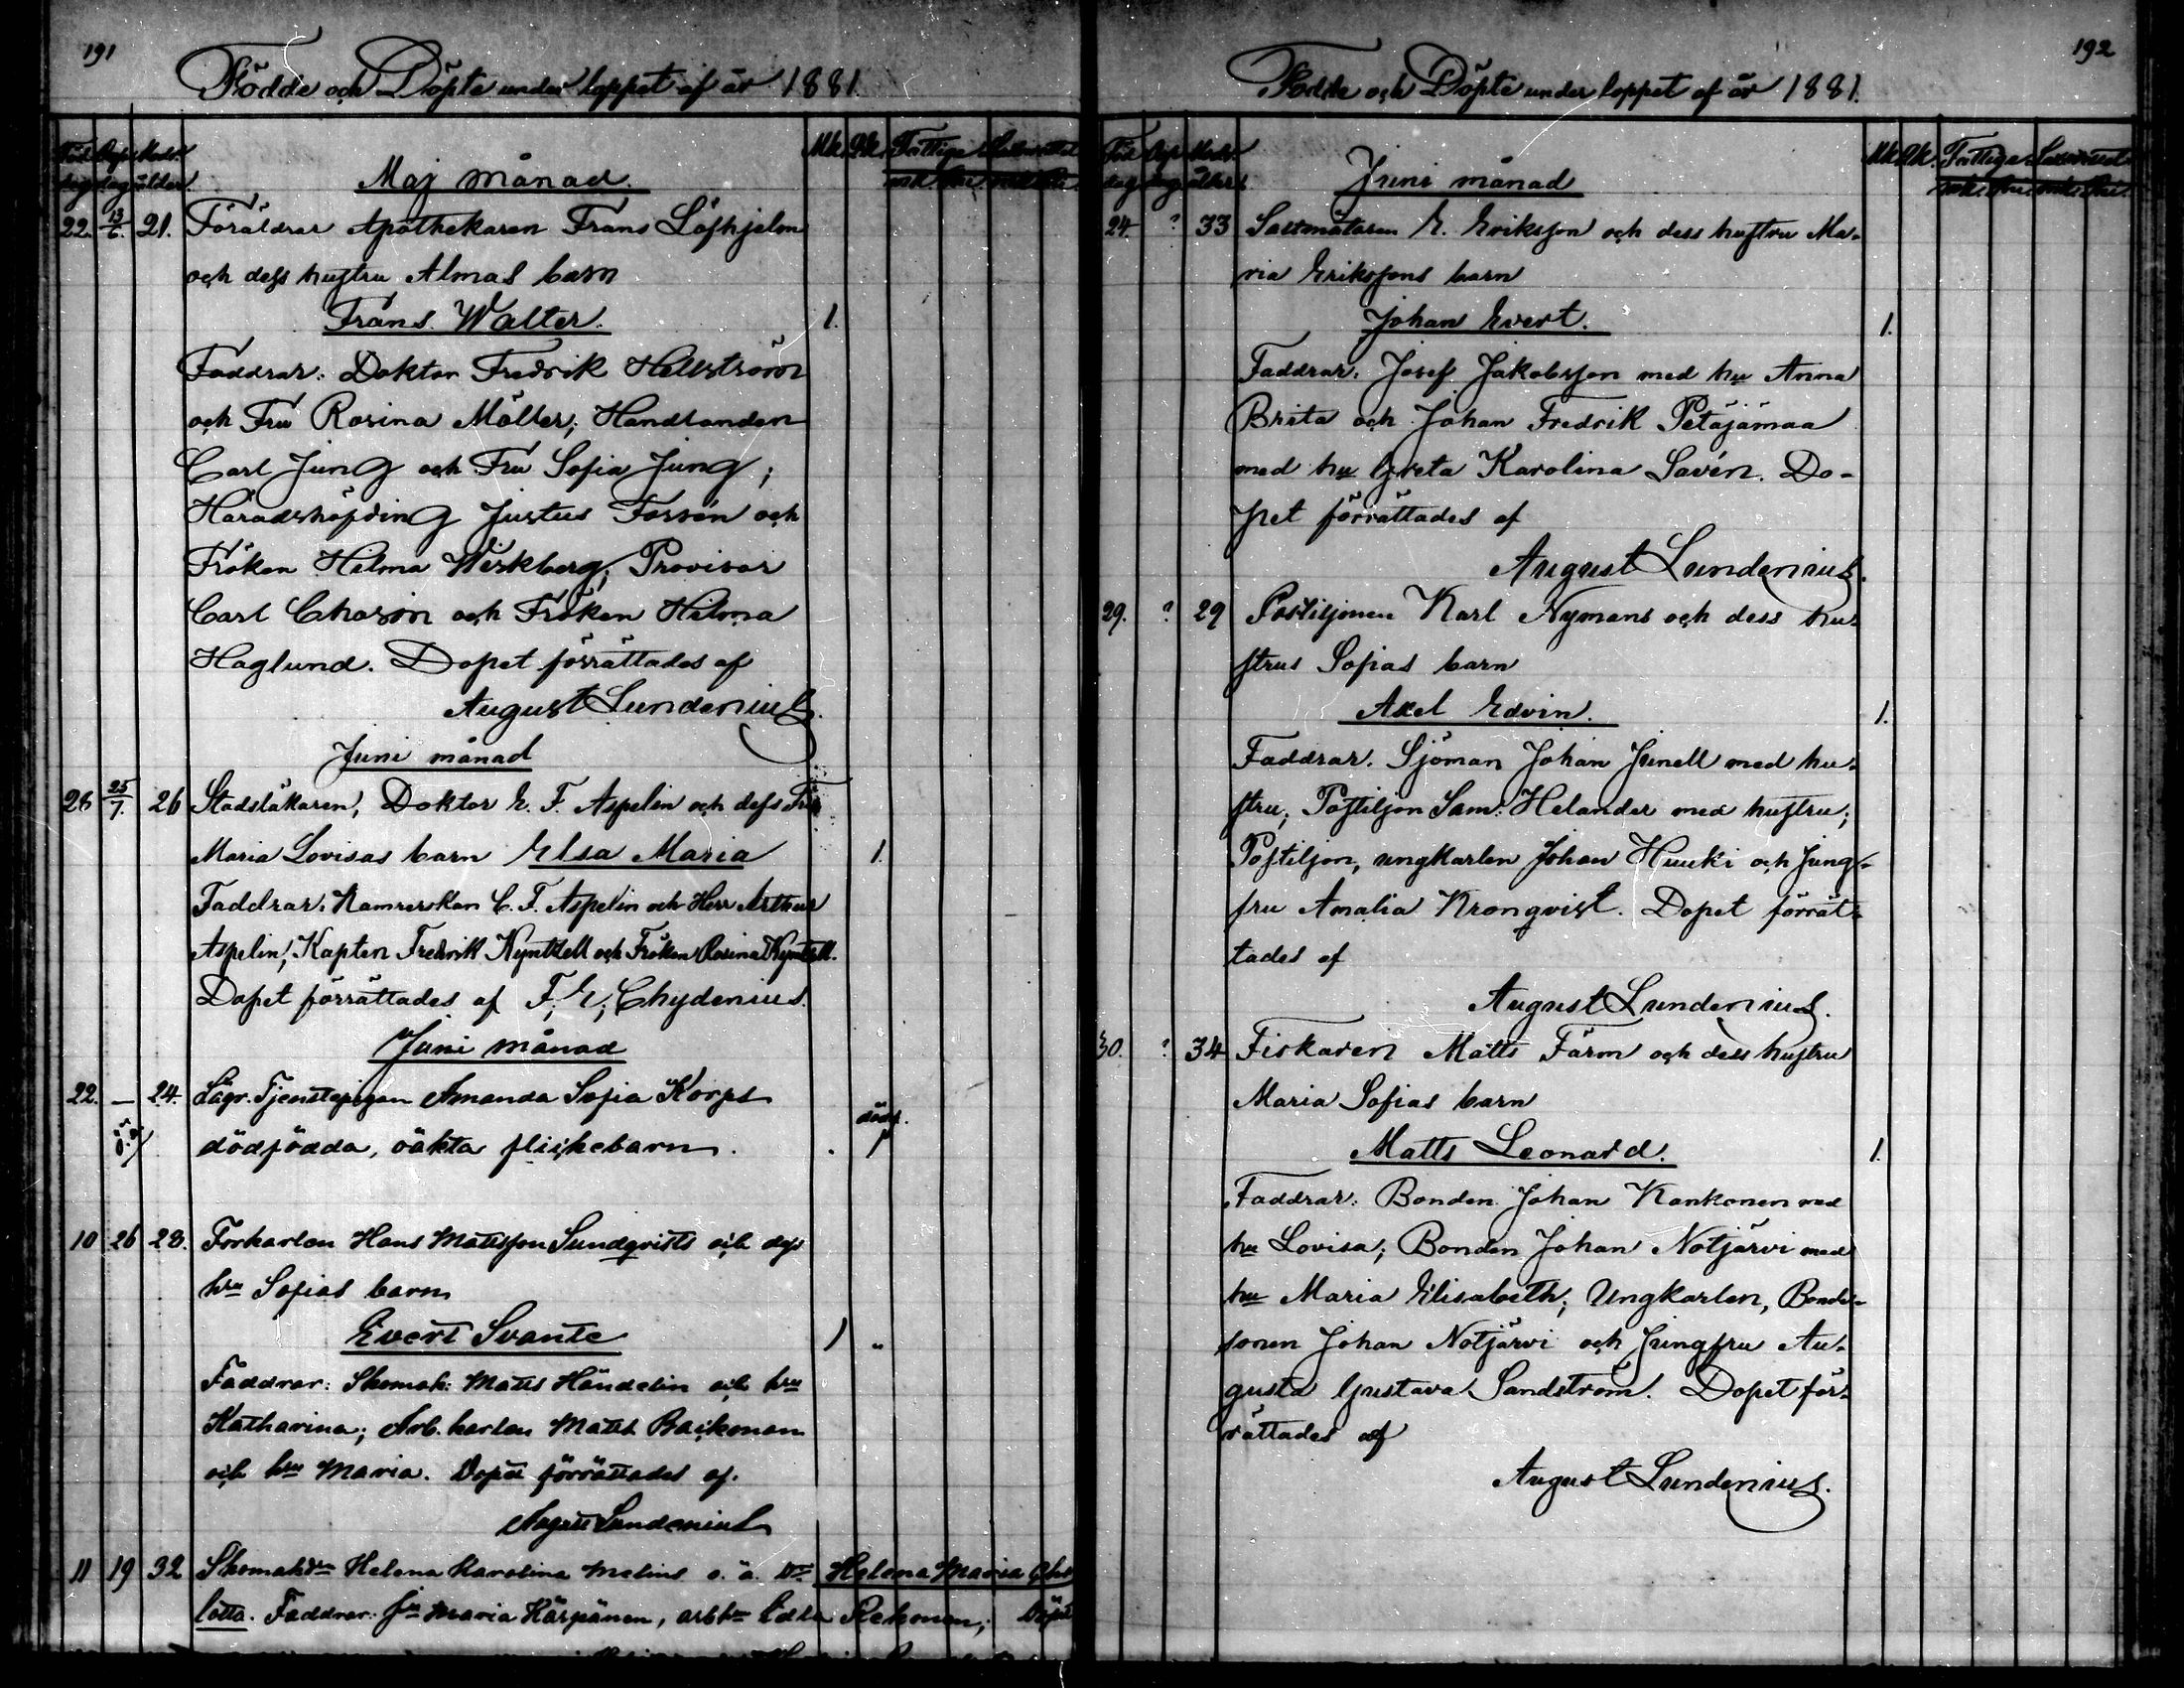 191
Födde och Döpte under loppet af år 1881.
Föd. dag Döpe dag Modr. ålder Mk. Qk. Fattiga
Maj månad.
22. 13/6. 21. Föräldrar Apothekaren Frans Löfhjelm
och dess hustru Almas barn
Frans Walter. 1.
Faddrar: Doktor Fredrik Hellström
och Fru Rosina Möller; Handlanden
Carl Jung och Fru Sofia Jung;
Häradshöfding Justus Forsén och
Fröken Hilma Wirkberg; Provisor
Carl Chosin och Fröken Hilma
Haglund. Dopet förrättades af
August Lundenius.
Juni månad
26 25/7. 26 Stadsläkaren, Doktor E. F. Aspelin och dess Fru
Maria Lovisas barn Elsa Maria 1.
Faddrar: Kamrerskan C. F. Aspelin och Herr Arthur
Aspelin; Kapten Fredrik Kyntzell och Fröken Rosina Kyntzell.
Dopet förrättades af F. E. Chydenius.
Juni månad
22. — 24. Lägr. Tjenstepigan Amanda Sofia Korps
o.ä. dödfödda, oäkta flickebarn. dödf. 1
10 26 28. Forkarlen Hans Mattsson Sundqvists och dess
hru Sofias barn
Evert Svante 1 "
Faddrar: Skomak: Matts Händelin och hru
Katharina; Arb. karlen Matts Backonen
och hru Maria. Dopet förrättades af.
August Lundenius
11 19 32 Skomakdrn Helena Karolina Melins o. ä. Dr Helena Maria Char
lotta. Faddrar: Maria Kärpänen, Rekonen; Döpt
192
Födde och Döpte under loppet af år 1881.
Föd dag Döp dag Modr. ålder Mk. Qk. Fattiga
Juni månad
24. ? 33 Saltmätaren E. Eriksson och dess hustru Ma-
ria Erikssons barn
Johan Evert. 1.
Faddrar: Josef Jakobsson med hu Anna
Brita och Johan Fredrik Petäjämaa
med hu Greta Karolina Savén. Do-
pet förrättades af
August Lundenius.
29. ? 29 Postiljonen Karl Nymans och dess hu-
strus Sofias barn
Axel Edvin. 1.
Faddrar. Sjöman Johan Junell med hu-
stru; Postiljon Sam: Helander med hustru;
Postiljon, ungkarlen Johan Huuki och Jung-
fru Amalia Kronqvist. Dopet förrät-
tades af
August Lundenius.
30. ? 34 Fiskaren Matts Färm och dess hustru
Maria Sofias barn
Matts Leonard. 1.
Faddrar: Bonden Johan Kankonen med
hu Lovisa; Bonden Johan Notjärvi med
hu Maria Elisabeth; Ungkarlen, Bonde-
sonen Johan Notjärvi och Jungfru Au-
gusta Gustava Sandström. Dopet för-
rättades af
August Lundenius.